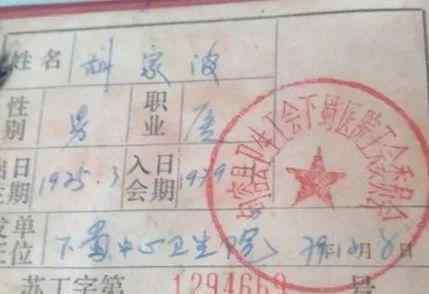 姓名 科家波
性别 男 职业 医
出生日期 1925.3 入会日期 1979
发证单位 下蜀中心卫生院 79年12月8日
苏工字第 1294669 号
句容县卫生工会下蜀医院工会委员会